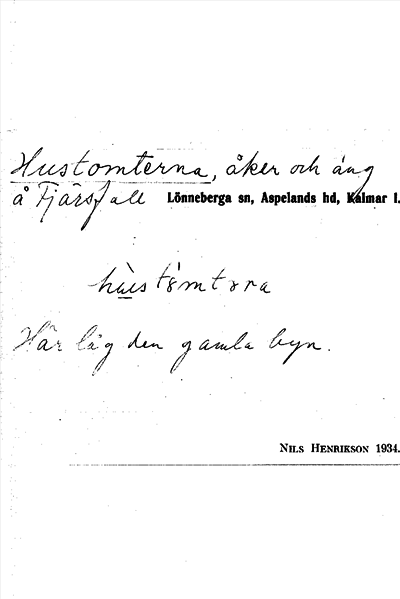 Hustomterna, åker och äng
å Fjärsfall Lönneberga sn, Aspelands hd, Kalmar l.
hùstòmtəra
Här låg den gamla byn.
NILS HENRIKSON 1934.